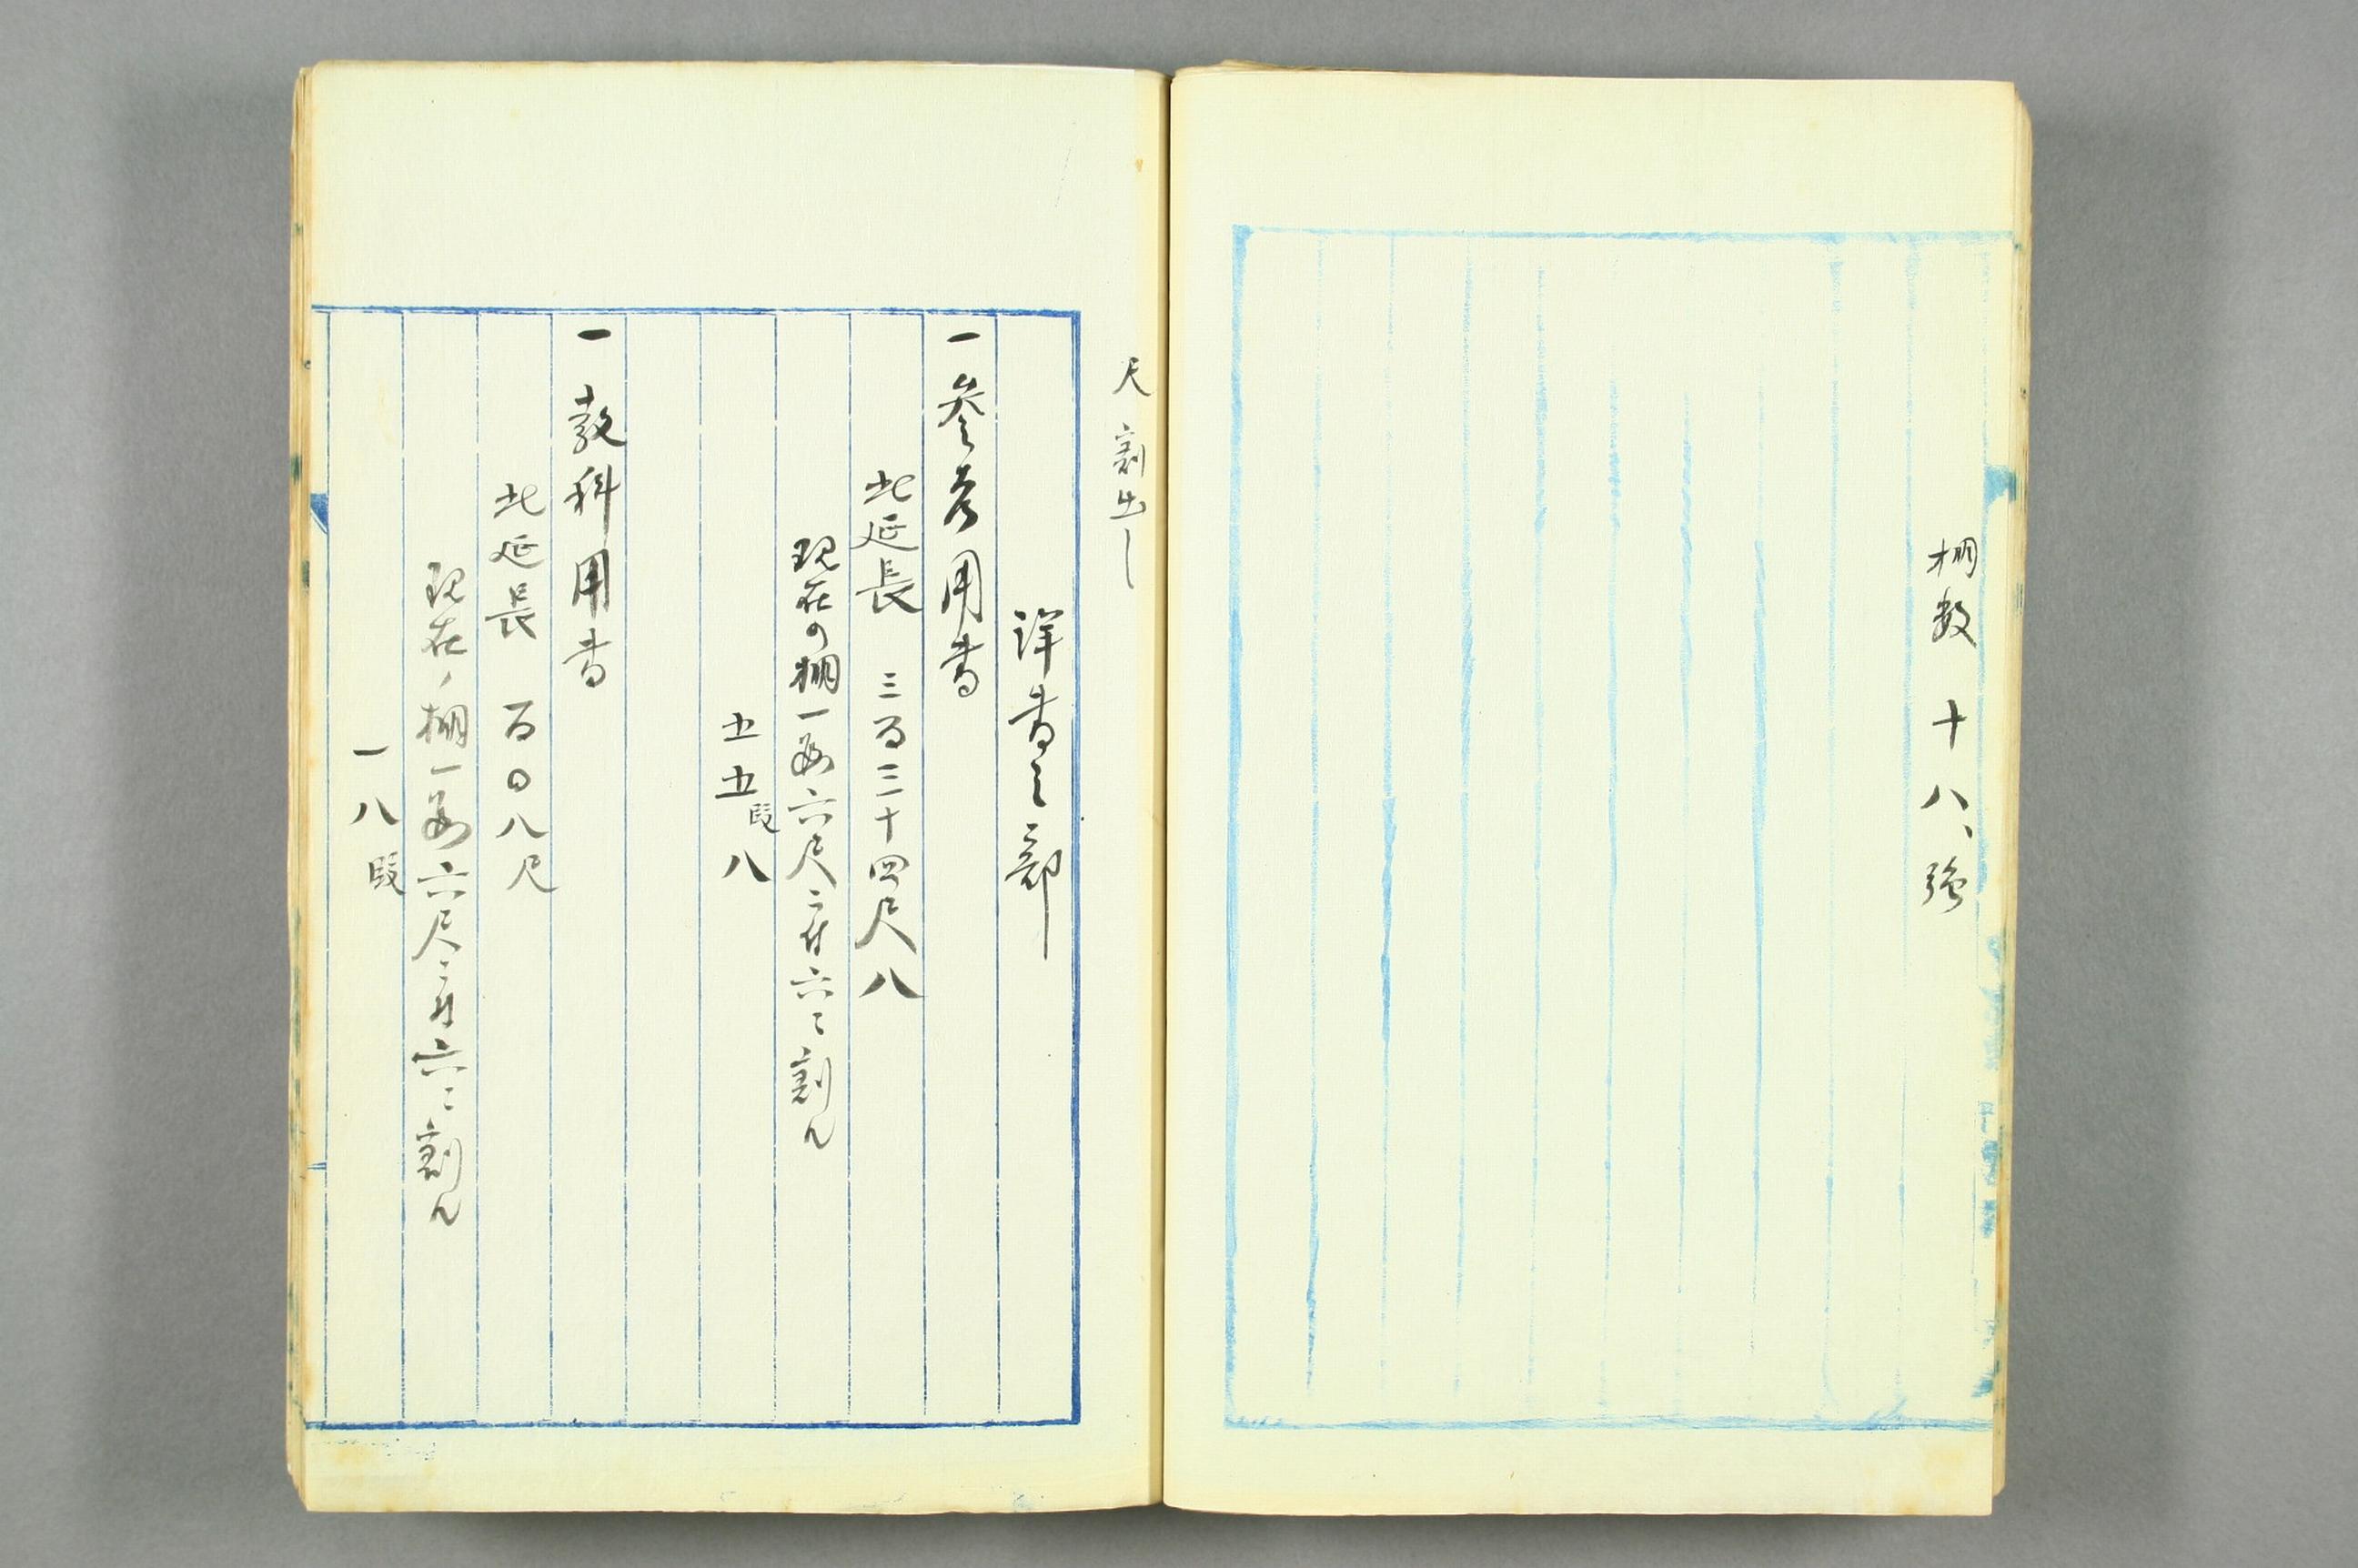 棚数 十八、強
尺割出し
洋書之部
一参考用書
此延長 三百三十四尺八
現在の棚一 六尺ニ付六ニ割ル
五五段八
一教科用書
此延長 百〇八尺
現在ノ棚一 六尺ニ付六ニ割ル
一八段